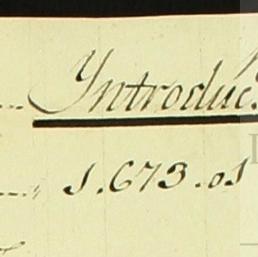 Yntroduc
1.673.01